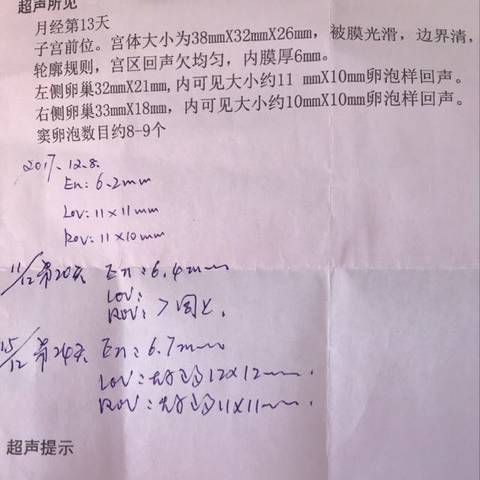 超声所见
月经第13天
子宫前位。宫体大小为38mmX32mmX26mm，被膜光滑，边界清，
轮廓规则，宫区回声欠均匀，内膜厚6mm。
左侧卵巢32mmX21mm,内可见大小约11 mmX10mm卵泡样回声。
右侧卵巢33mmX18mm，内可见大小约10mmX10mm卵泡样回声。
窦卵泡数目约8-9个
2017.12.8.
En: 6.2mm
Lov: 11×11mm
Rov: 11×10mm
11/12 第20天 En: 6.4mm
LOV:
ROV: >同上.
15/12 第24天 En: 6.7mm
LOV: 12×12mm.
ROV: 11×11mm.
超声提示